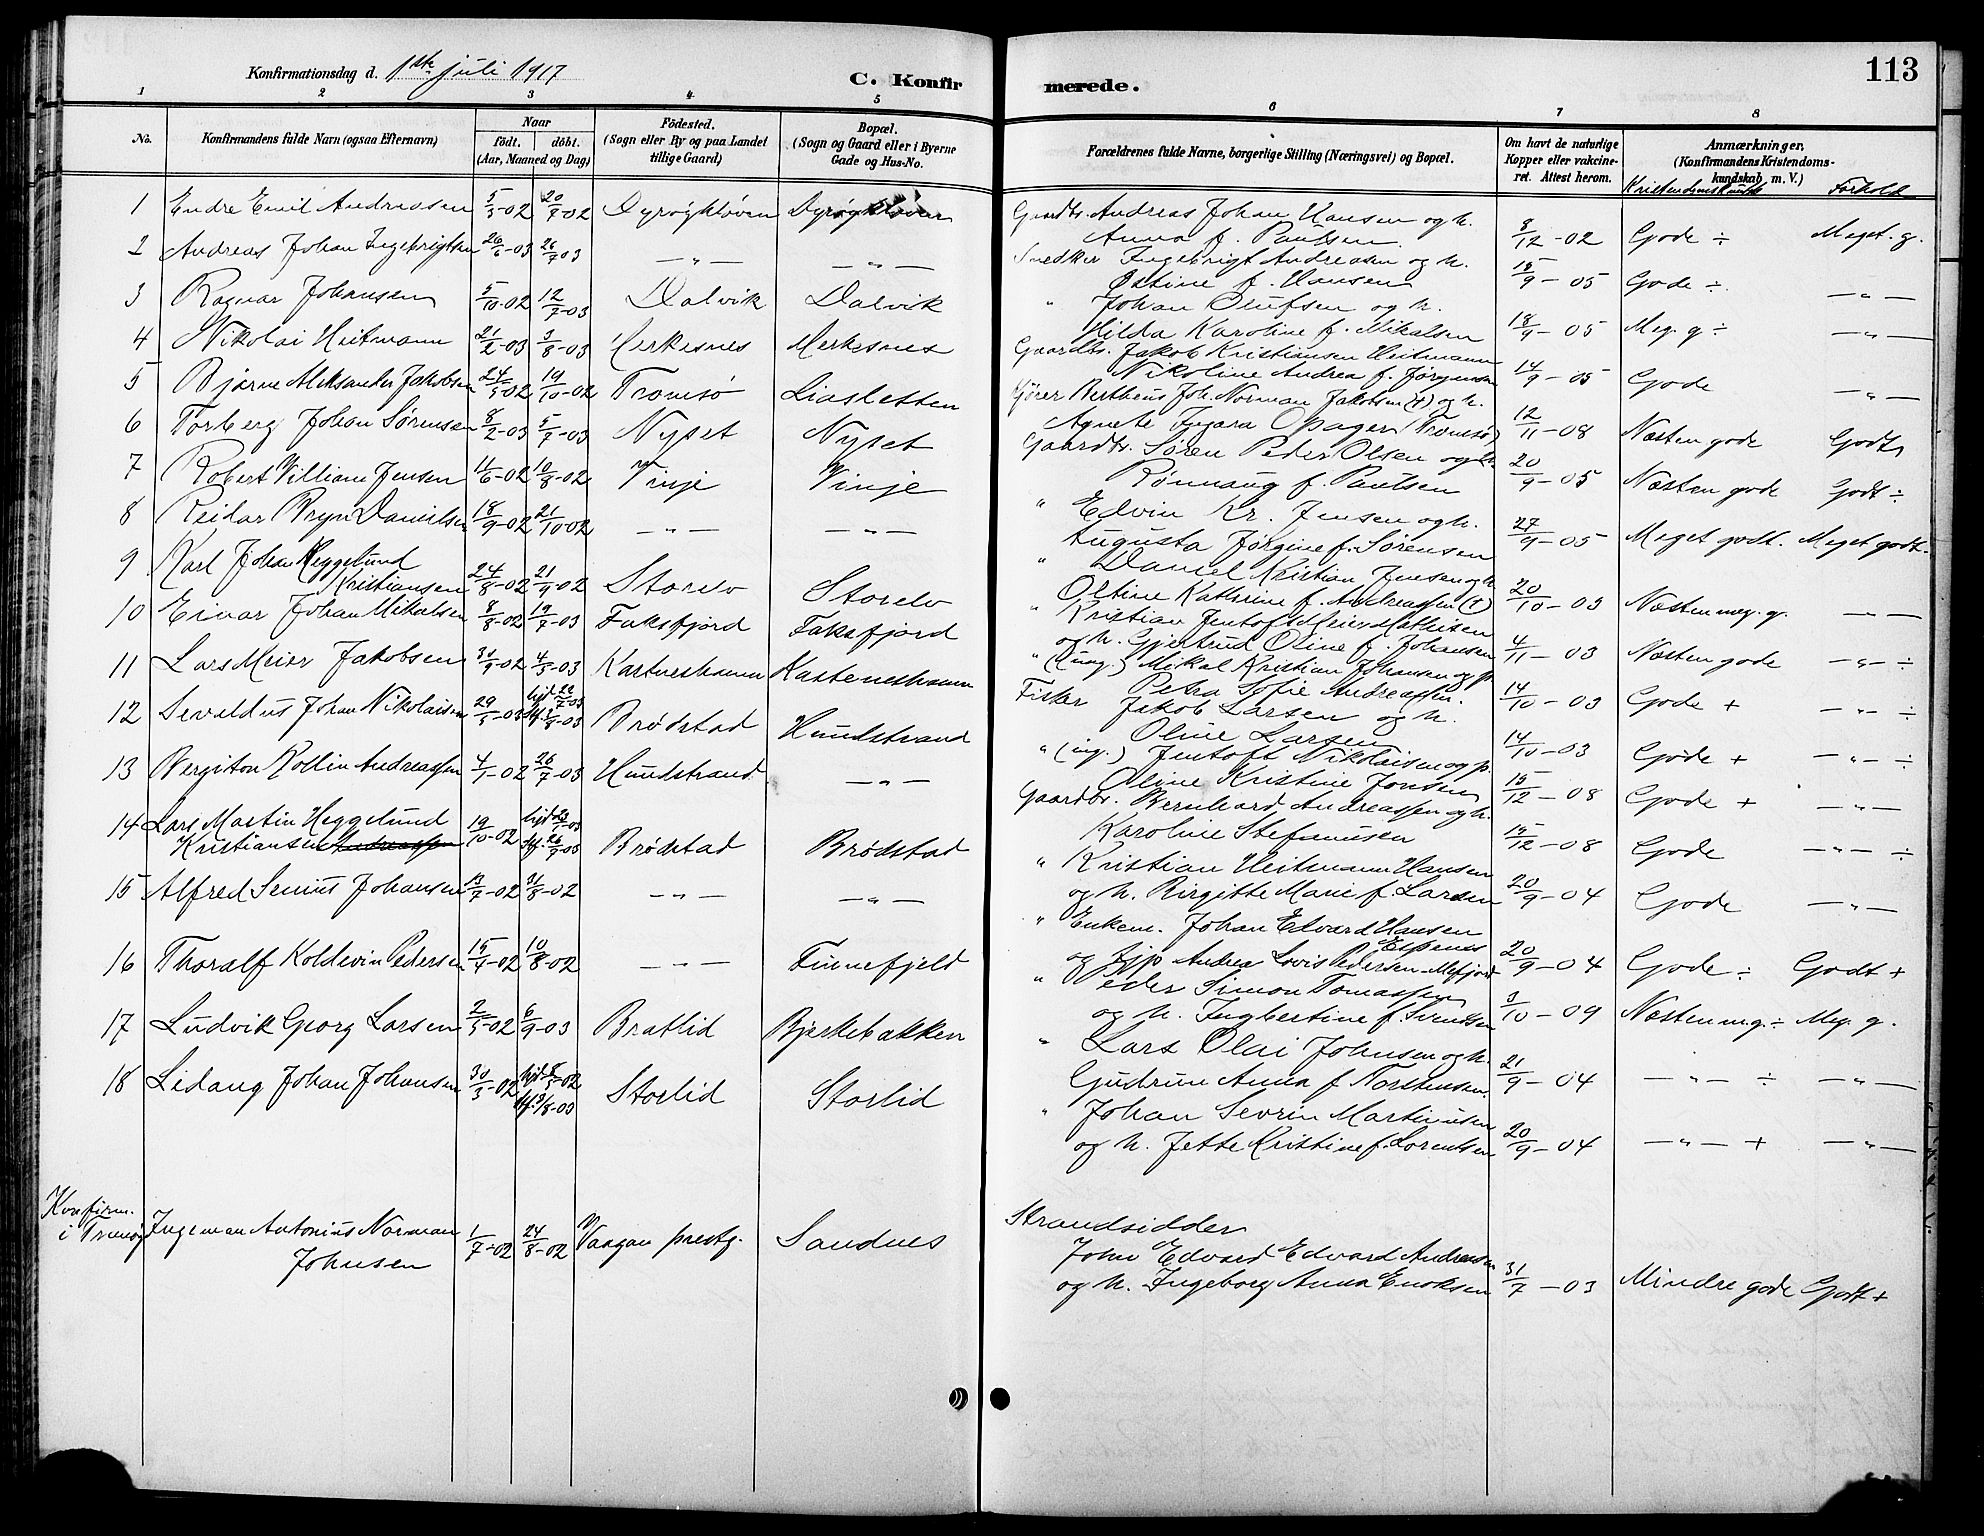 Konfirmationsdag d. 1ste juli 1917
C. Konfirmerede.
113
1 2 3 4 5 6 7 8
No.
Konfirmandens fulde Navn (ogsaa Efternavn)
Naar
födt. döbt.
(Aar, Maaned og Dag)
Födested.
(Sogn eller By og paa Landet
tillige Gaard)
Bopæl.
(Sogn og Gaard eller i Byerne
Gade og Hus-No.
Forældrenes fulde Navne, borgerlige Stilling (Næringsvei) og Bopæl.
Om havt de naturlige
Kopper eller vakcine-
ret. Attest herom.
Anmærkninger.
(Konfirmandens Kristendoms-
kundskab m. V.)
Kristendomskundsk Forhold
1 Endre Emil Andreasen 5/3-02 20/7-02 Dyrøykløven Dyrøykløven
Gaardbr. Andreas Johan Hansen og h.
Anna f. Paulsen 8/12-02 Gode ÷ Meget g.
2 Andreas Johan Ingebrigtsen 26/6-03 26/7-03 —„— —„—
Snedker Ingebrigt Andreasen og h.
Østine f. Hansen 15/9-05 Gode ÷ —„—
3 Ragnar Johansen 5/10-02 12/7-03 Dalvik Dalvik
„ Johan Olufsen og h.
Hilda Karoline f. Mikalsen 18/9-05 Meg. g ÷ —„—
4 Nikolai Heitmann 21/2-03 3/8-03 Merkesnes Merkesnes
Gaardbr. Jakob Kristiansen Heitmann
Nikoline Andrea f. Jørgensen 14/9-05 Gode —„—
5 Bjarne Aleksander Jakobsen 24/5-02 19/10-02 Tromsø Liasletten
Gjører Bertheus Joh. Norman Jakobsen (+) og h.
Agnete Ingara Opager (Tromsø) 12/11-08 Næsten gode Godt
6 Torberg Johan Sørensen 8/2-03 5/7-03 Nyset Nyset
Gaardbr. Søren Peder Olsen og h.
Rønnaug f. Paulsen 20/9-05 Næsten gode Godt ÷
7 Robert William Jensen 11/6-02 10/8-02 Vinje Vinje
„ Edvin Kr. Jensen og h.
Augusta Jørgine f. Sørensen 27/9-05 Meget godt. Meget godt.
8 Reidar Bryn Danielsen 18/9-02 21/10-02 —„— —„—
„ Daniel Kristian Jensen og h
Oltine Kathrine f. Andreassen (+) 20/10-03 Næsten meg. g. ——
9 Karl Johan Heggelund
Kristiansen 24/8-02 21/9-02 Storelv Storelv
„ Kristian Jentoft Meier Mathisen
og h. Gjertrud Oline f. Johansen 4/11-03 Næsten gode —„— ÷
10 Einar Johan Mikalsen 8/8-02 19/7-03 Faksfjord Faksfjord
„ (ung.) Mikal Kristian Johansen og p.
Petra Sofie Andreassen. 14/10-03 Gode + —„— ÷
11 Lars Meier Jakobsen 4/3-03 Kastneshamn Kasteneshamn
Fisker Jakob Larsen og h.
Oline Larsen 14/10-03 Gode + —„— ÷
12 Sevaldus Johan Nikolaisen 29/5-03 Brødstad Hundstrand
„ (ung.) Jentoft Nikolaisen og p.
Oline Kristine Jonsen 15/12-08 Gode + —„—
13 Bergiton Kollin Andreassen 4/1-02 26/7-03 Hundstrand —„—
Gaardbr. Bernhard Andreassen og h.
Karoline Stefanusen 15/12-08 Gode —„— ÷
14 Lars Martin Heggelund
Kristiansen 19/10-02 Brødstad Brødstad
„ Kristian Heitmann Hansen
og h. Birgitte Marie f. Larsen 20/9-04 Gode —„—
15 Alfred Senius Johansen 13/7-02 31/8-02 —„— —„—
„ Enkem. Johan Edvard Hansen
Espenes
og Andrea Lovise Pedersen Mefjord 20/9-04 Gode ÷ Godt +
16 Thoralf Koldevin Pedersen 15/4-02 10/8-02 —„— Finnefjeld
„ Peder Simon Tomassen
og h. Ingbertine f. Svendsen 3/10-09 Næsten m.g. ÷ Meg. g.
17 Ludvik Georg Larsen 2/5-02 6/9-03 Bratlid Bjerkebakken
„ Lars Olai Johnsen og h.
Gudrun Anna f. Torstensen. 21/9-04 —„— ÷ —„—
18 Lidang Johan Johansen 30/3-02 Storlid Storlid
„ Johan Sevrin Martinusen
og h. Jette Kristine f. Lorentsen 20/9-04 —„— + —„—
Konfirm.
i Tranøy Ingeman Antonius Norman
Johnsen 1/7-02 24/8-02 Vaagan prestg. Sandnes
Strandsidder
John Edvard Edvard Andreassen
og h. Ingeborg Anna Enoksen 31/7-03 Mindre gode Godt +